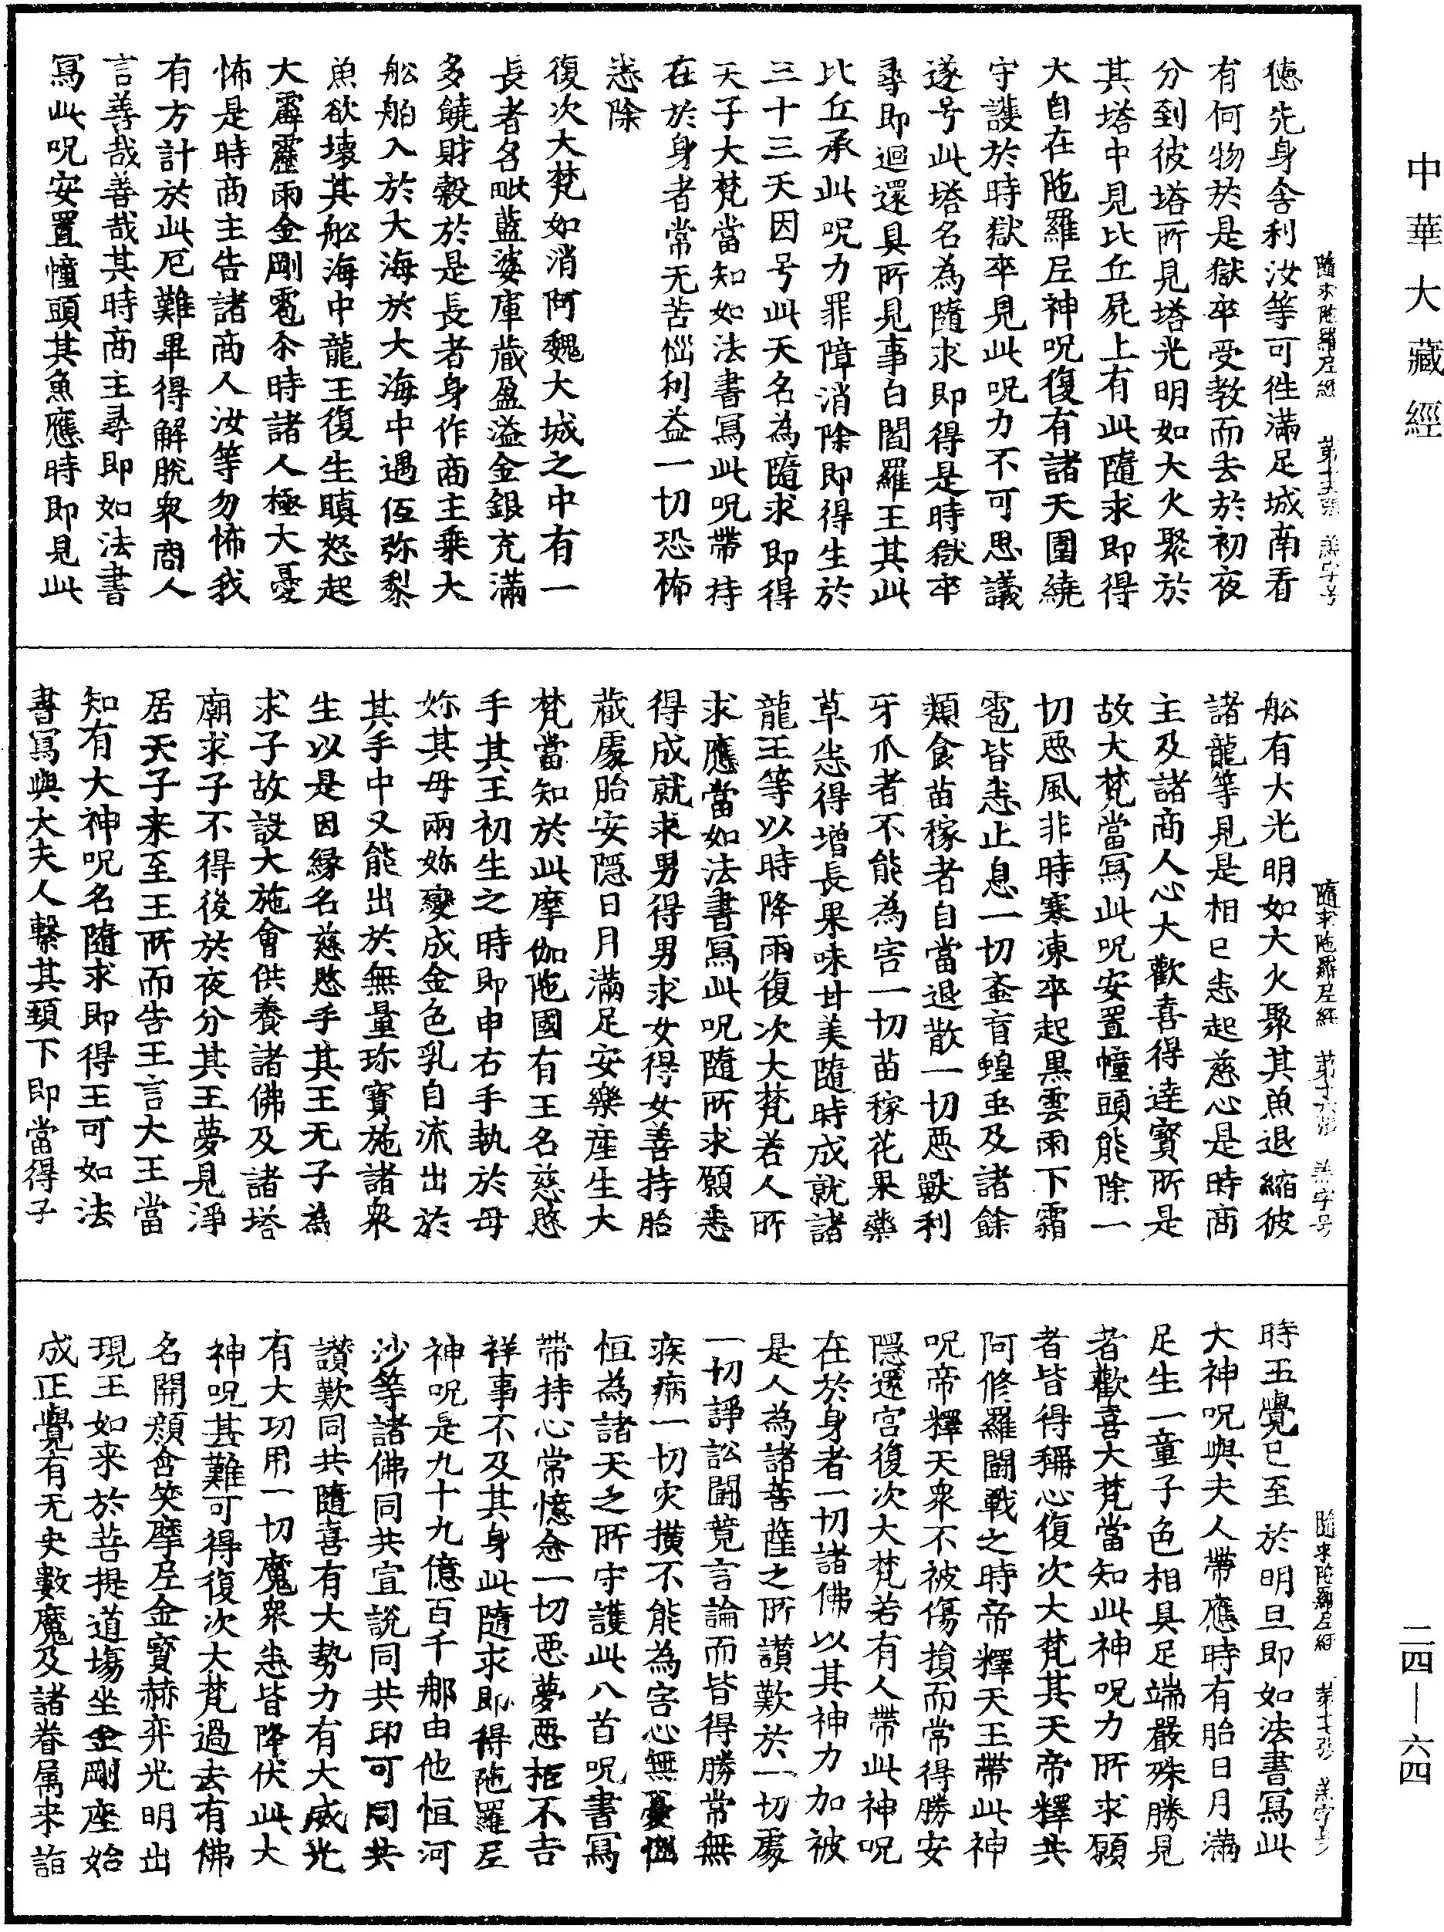 中華大藏經
德先身舍利汝等可徃滿足城南看
有何物於是獄卒受教而去於初夜
分到彼塔所見塔光明如大火聚於
其塔中見比丘屍上有此隨求即得
大自在陁羅尼神呪復有諸天圍繞
守護於時獄卒見此呪力不可思議
遂号此塔名為隨求即得是時獄卒
尋即迴還具所見事白閻羅王其此
比丘承此呪力罪障消除即得生於
三十三天因号此天名為隨求即得
天子大梵當知如法書寫此呪帶持
在於身者常无苦惱利益一切恐怖
悉除
復次大梵如消阿魏大城之中有一
長者名毗藍婆庫藏盈溢金銀充滿
多饒財穀於是長者身作商主乘大
舩舶入於大海於大海中遇伍弥梨
魚欲壞其舩海中龍王復生瞋怒起
大霹靂雨金剛雹尒時諸人極大憂
怖是時商主告諸商人汝等勿怖我
有方計於此厄難畢得解脫衆商人
言善哉善哉其時商主尋即如法書
寫此呪安置幢頭其魚應時即見此
隨求陁羅尼經　第十五張　羔字号
舩有大光明如大火聚其魚退縮彼
諸龍等見是相已悉起慈心是時商
主及諸商人心大歡喜得達寶所是
故大梵當寫此呪安置幢頭能除一
切惡風非時寒凍卒起黑雲雨下霜
雹皆悉止息一切蚉盲蝗䖝及諸餘
類食苗稼者自當退散一切惡獸利
牙爪者不能為害一切苗稼花果藥
草悉得增長果味甘美隨時成就諸
龍王等以時降雨復次大梵若人所
求應當如法書寫此呪隨所求願悉
得成就求男得男求女得女善持胎
藏處胎安隱日月滿足安樂產生大
梵當知於此摩伽陁國有王名慈愍
手其王初生之時即申右手執於母
妳其母兩妳變成金色乳自流出於
其手中又能出於無量珎寶施諸衆
生以是因緣名慈愍手其王无子為
求子故設大施會供養諸佛及諸塔
廟求子不得後於夜分其王夢見淨
居天子来至王所而告王言大王當
知有大神呪名隨求即得王可如法
書寫與大夫人繫其頸下即當得子
隨求陁羅尼經　第十六張　羔字号
時王覺已至於明旦即如法書寫此
大神呪與夫人帶應時有胎日月滿
足生一童子色相具足端嚴殊勝見
者歡喜大梵當知此神呪力所求願
者皆得稱心復次大梵其天帝釋共
阿修羅鬬戰之時帝釋天王帶此神
呪帝釋天衆不被傷損而常得勝安
隱還宮復次大梵若有人帶此神呪
在於身者一切諸佛以其神力加被
是人為諸菩薩之所讚歎於一切處
一切諍訟鬬競言論而皆得勝常無
疾病一切灾橫不能為害心無憂惱
恒為諸天之所守護此八首呪書寫
帶持心常憶念一切惡夢惡相不吉
祥事不及其身此隨求即得陁羅尼
神呪是九十九億百千那由他恒河
沙等諸佛同共宣說同共印可同共
讚歎同共隨喜有大勢力有大威光
有大功用一切魔衆悉皆降伏此大
神呪甚難可得復次大梵過去有佛
名開顏含笑摩尼金寶赫弈光明出
現王如来於菩提道場坐金剛座始
成正覺有无央數魔及諸眷属来詣
隨求陁羅尼經　第十七張　羔字号
二四—六四